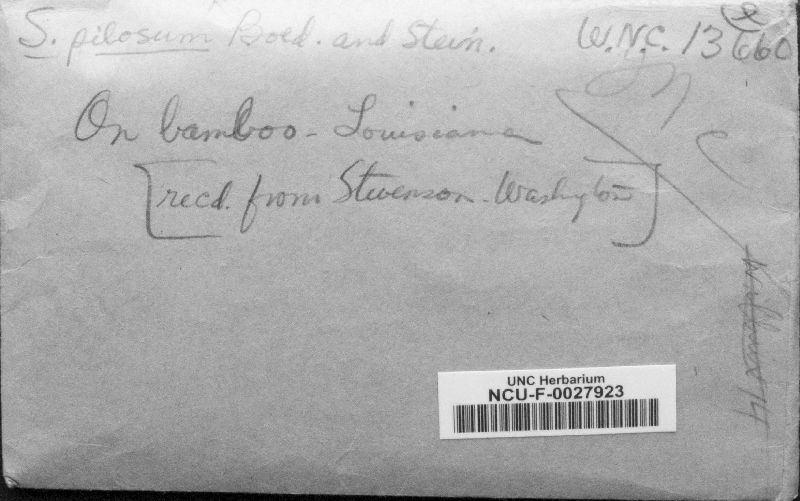 S. pilosum Boed. and Stein. W.N.C. 13660
On bamboo - Louisiana
[recd. from Stevenson - Washington]
UNC Herbarium
NCU-F-0027923